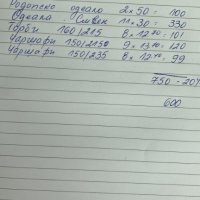 Родопско одеяло 2 x 50 = 100
Одеяла . Сливен 11 x 30 = 330
Торби 160/215 8 x 12.⁶⁰ = 101
Чаршафи 150/215 9 x 13.⁴⁰ = 120
Чаршафи 150/235 8 x 12.⁴⁰ = 99
750 - 20%
600